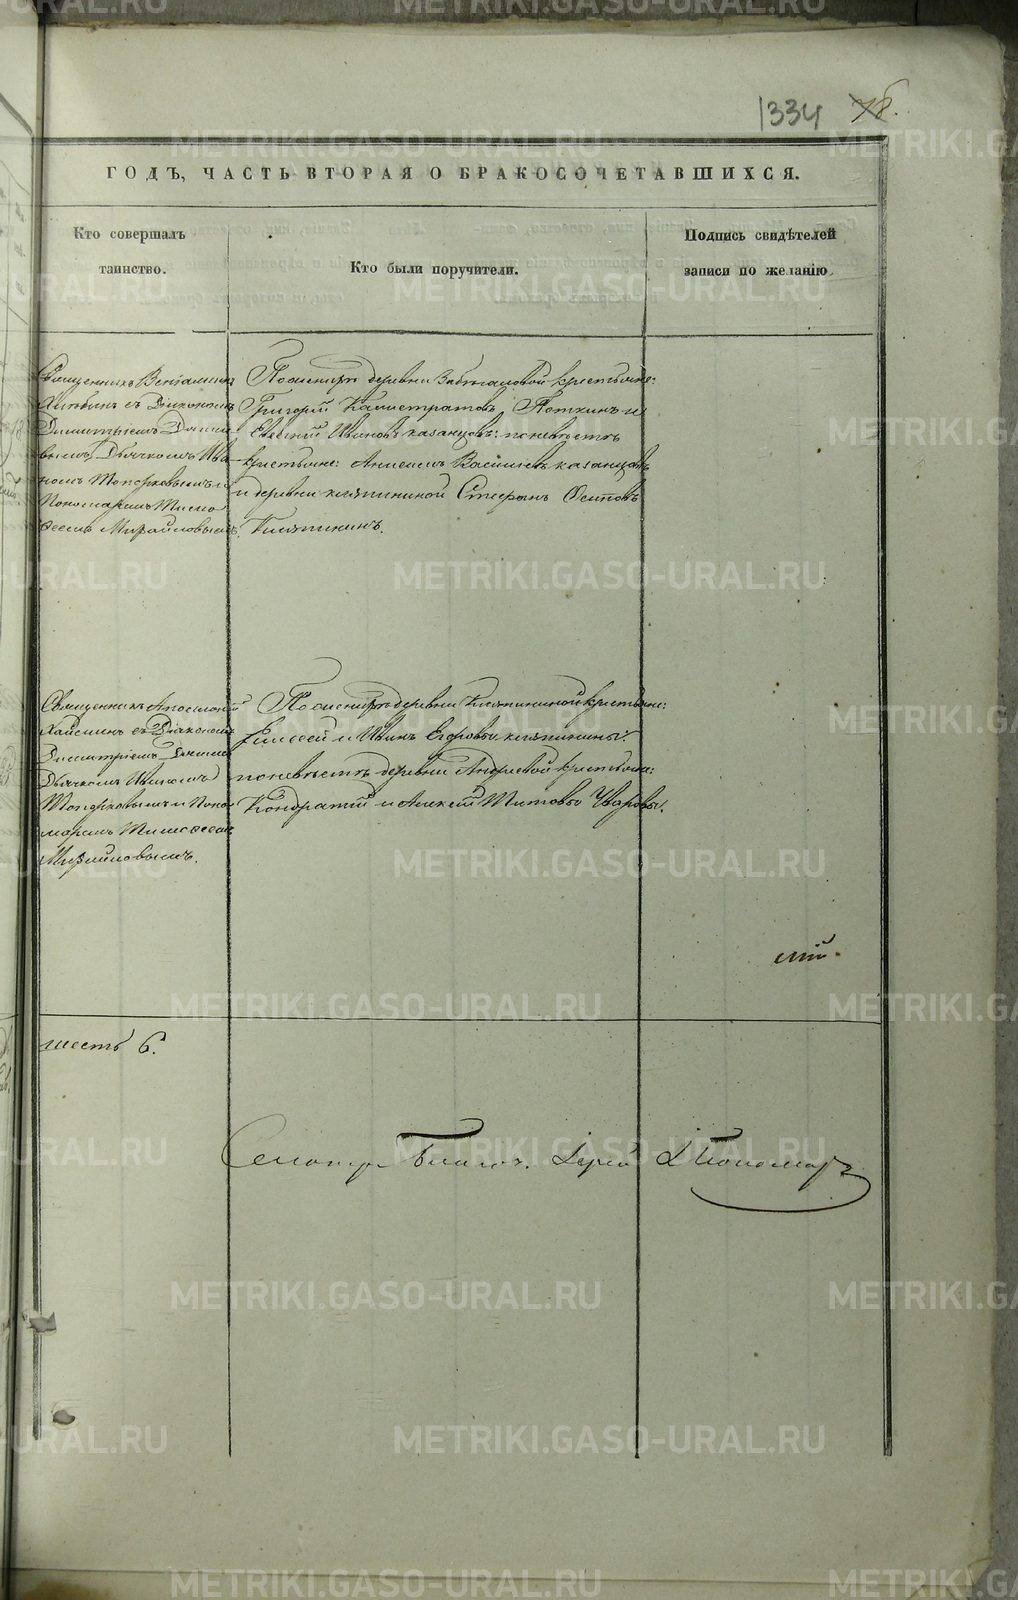 1334 78.
ГОДЪ, ЧАСТЬ ВТОРАЯ О БРАКОСОЧЕТАВШИХСЯ.
Кто совершалъ
таинство.
Кто были поручители.
Подпись свидѣтелей
записи по желанію.
Священникъ Веніаминъ
съ Діакономъ
Димитріемъ
Дьячкомъ Ива-
номъ Топорковымъ и
Пономаремъ Тимо-
ѳеемъ Михайловымъ.
По женихѣ деревни крестьяне:
Григорій Калистратовъ и
Евгеній Ивановъ Казанцовъ; по невѣстѣ
крестьяне: Алексей Васильевъ Казанцовъ
и деревни Кляпининой Стефанъ Осиповъ
Кляпининъ.
Священникъ Аполлоній
съ Діакономъ
Димитріемъ
Дьячкомъ Иваномъ
Топорковымъ и Поно-
маремъ Тимоѳеемъ
Михайловымъ.
По женихѣ деревни Кляпининой крестьяне:
Елисей и Иванъ Егоровы Кляпинины;
по невѣстѣ деревни Андреевой крестьяне:
Кондратій и Алексѣй Титовы Уваровы.
шесть 6.
Іерей Пономар
METRIKI.GASO-URAL.RU